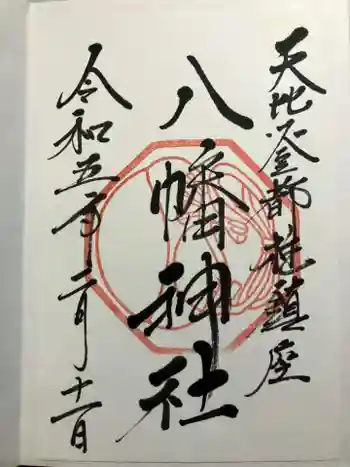 天比谷 都 鎮座
八幡神社
令和五年二月十一日